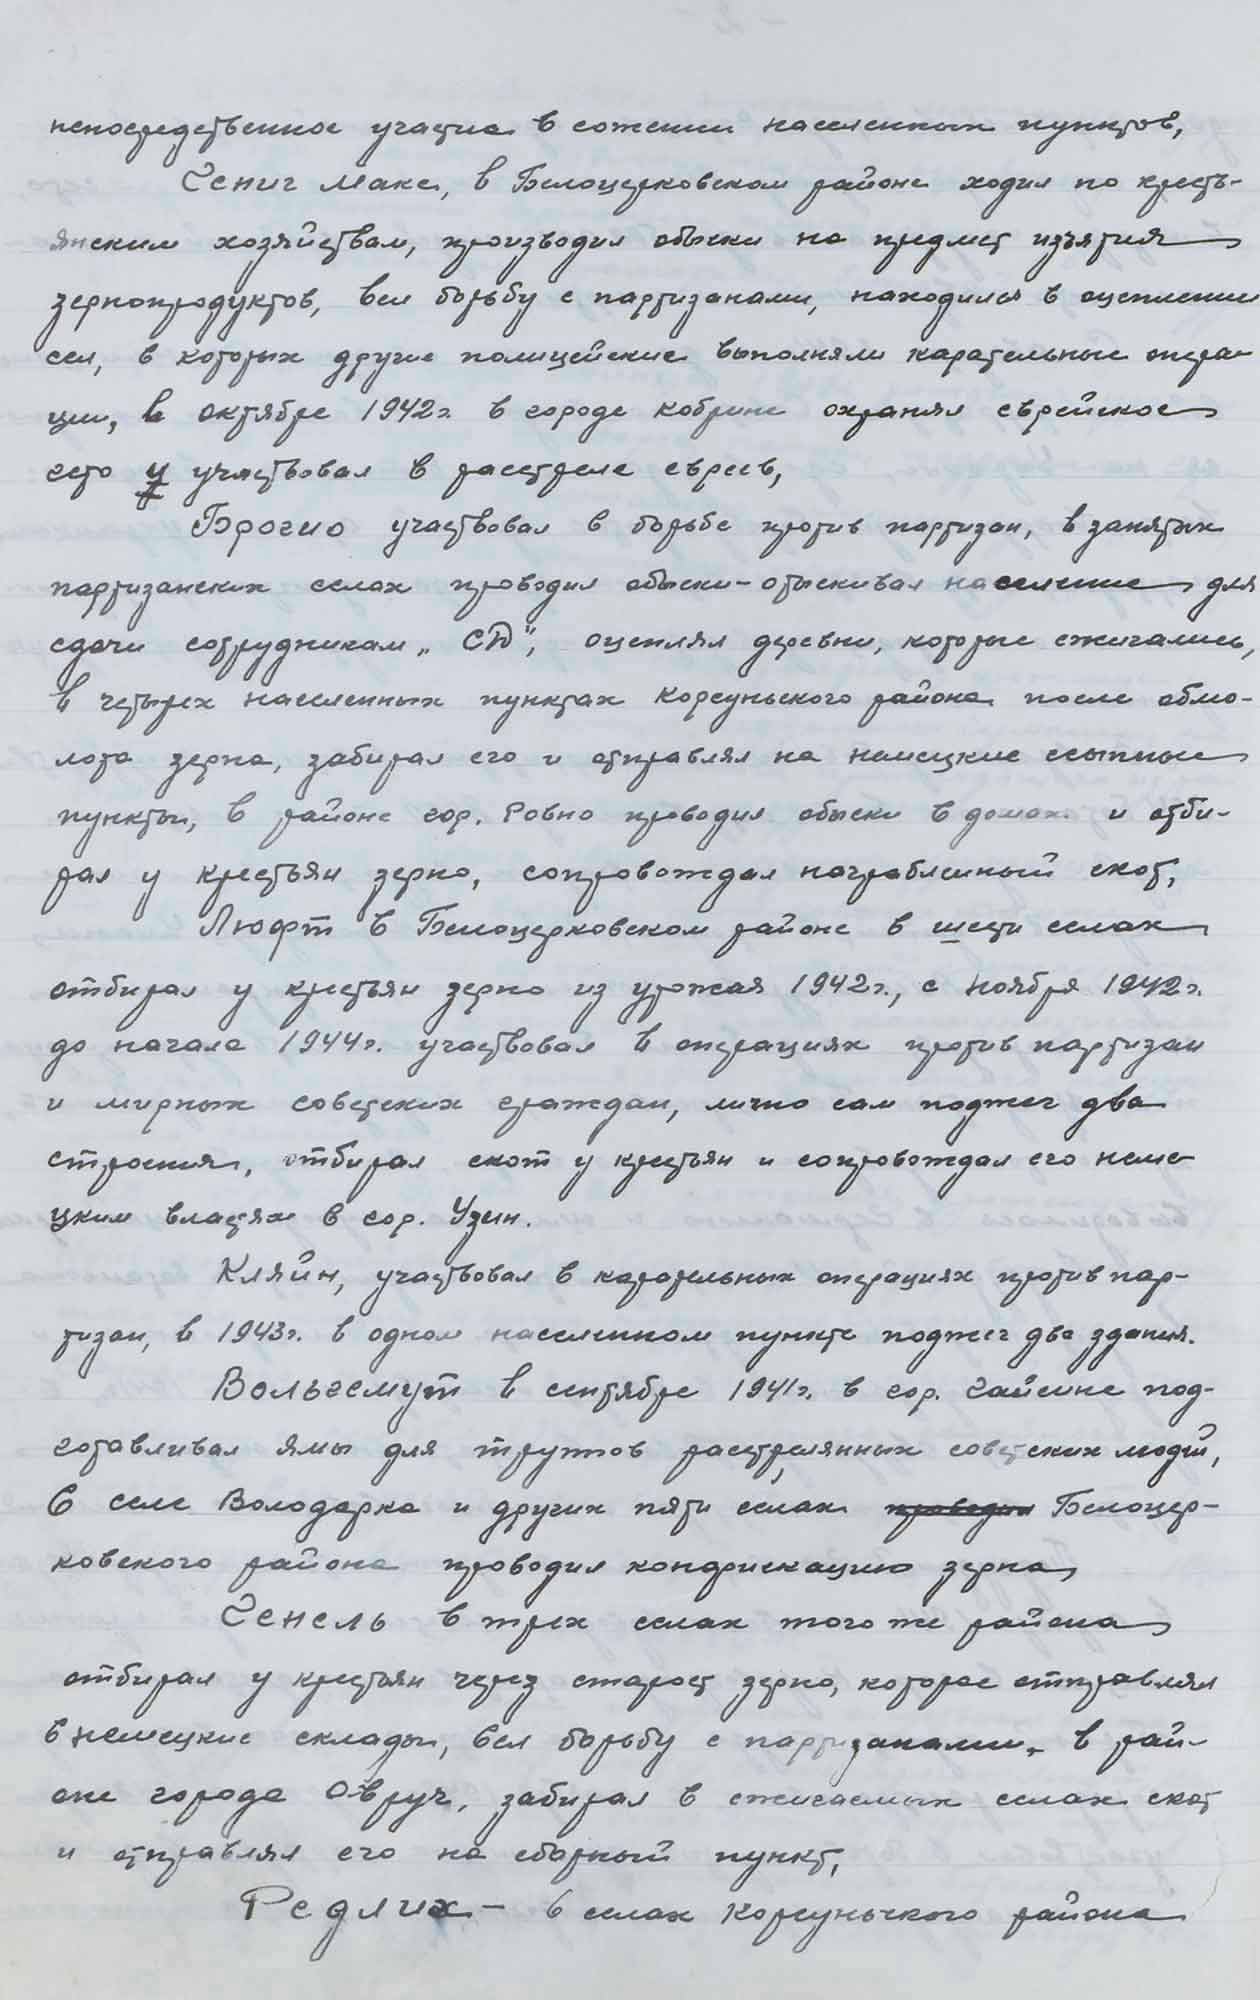 непосредственное участие в сожжении населенных пунктов,
Гениг Макс, в Белоцерковском районе ходил по кресть-
янским хозяйствам, производил обыски на предмет изъятия
зернопродуктов, вел борьбу с партизанами, находился в оцеплении
сел, в которых другие полицейские выполняли карательные опера-
ции, в октябре 1942 г. в городе Кобрине охранял еврейское
гето и участвовал в расстреле евреев,
Брогио участвовал в борьбе против партизан, в занятых
партизанских селах проводил обыски - отыскивал население для
сдачи сотрудникам „СД", оцеплял деревни, которые сжигались,
в четырех населенных пунктах Корсуньского района после обмо-
лота зерна, забирал его и отправлял на немецкие ссыпные
пункты, в районе гор. Ровно проводил обыски в домах и отби-
рал у крестьян зерно, сопровождал награбленный скот,
Люфт в Белоцерковском районе в шести селах
отбирал у крестьян зерно из урожая 1942 г., с ноября 1942 г.
до начала 1944 г. участвовал в операциях против партизан
и мирных советских граждан, лично сам поджег два
строения, отбирал скот у крестьян и сопровождал его неме-
цким властям в гор. Узин.
Кляйн, участвовал в карательных операциях против пар-
тизан, в 1943 г. в одном населенном пункте поджег два здания.
Вольгемут в сентябре 1941 г. в гор. Гайсине под-
готавливал ямы для трупов расстрелянных советских людей,
в селе Володарка и других пяти селах проводил Белоцер-
ковского района проводил конфискацию зерна,
Генель в трех селах того же района
отбирал у крестьян через старост зерно, которое отправлял
в немецкие склады, вел борьбу с партизанами, в рай-
оне города Овруч, забирал в сжигаемых селах скот
и отправлял его на сборный пункт,
Редлих - в селах Корсуньского района